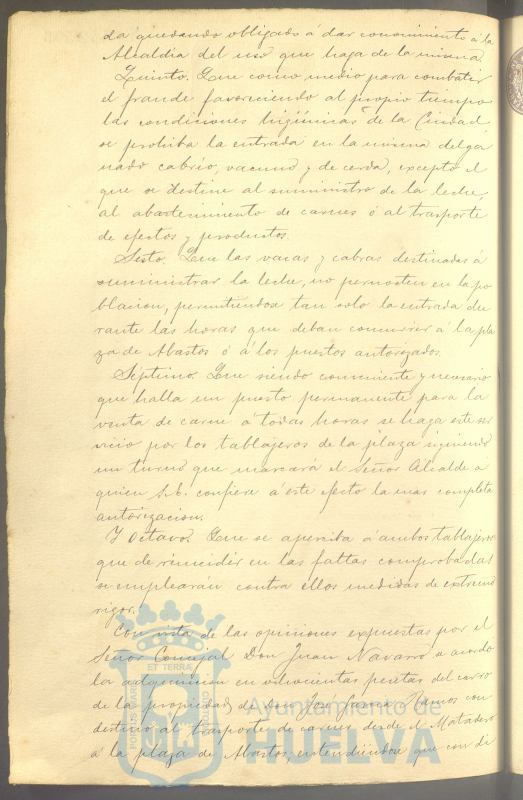 da quedando obligado á dar conocimiento á la
Alcaldia del uso que haga de la misma.
Quinto. Que como medio para combatir
el fraude favoreciendo al propio tiempo
las condiciones higiénicas de la Ciudad
se prohiba la entrada en la misma del ga
nado cabrio, vacuno y de cerda, excepto el
que se destine al suministro de la leche,
al abastecimiento de carnes ó al trasporte
de efectos y productos.
Sesto. Que las vacas y cabras destinadas á
suministrar la leche, no pernocten en la po
blacion, permitiendose tan solo la entrada du
rante las horas que deban concurrir á la pla
za de Abastos ó á los puestos autorizados.
Séptimo. Que siendo conveniente y necesario
que halla un puesto permanente para la
venta de carne á todas horas se haga este ser
vicio por los tablajeros de la plaza siguiendo
un turno que marcará el Señor Alcalde a
quien S.E. confiere á este efecto la mas completa
autorizacion.
Y Octavo. Que se aperciba á ambos tablajeros
que de reincidir en las faltas comprobadas
se emplearán contra ellos medidas de extremo
rigor.
Con vista de las opiniones expuestas por el
Señor Concejal Don Juan Navarro se acordo
la adquisicion en pesetas del carro
de la propiedad de Don José Garcia Ramos con
destino al trasporte de carnes desde el Matadero
a la plaza de Abastos, entendiendose que con di
Ayuntamiento de
HUELVA
PORTUS MARIS
ET TERRÆ